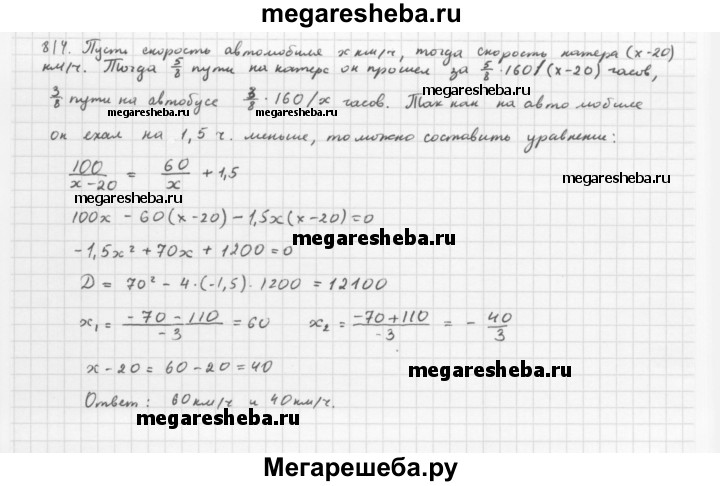 megaresheba.ru
814. Пусть скорость автомобиля x км/ч, тогда скорость катера (x-20)
км/ч. Тогда 5/8 пути на катере он прошел за 5/8 · 160/(x-20) часов,
megaresheba.ru
3/8 пути на автобусе 3/8 · 160/x часов. Так как на автомобиле
megaresheba.ru
он ехал на 1,5 ч. меньше, то можно составить уравнение:
100/(x-20) = 60/x + 1,5
megaresheba.ru
megaresheba.ru
100x - 60(x-20) - 1,5x(x-20)=0
megaresheba.ru
-1,5x² + 70x + 1200 = 0
D = 70² - 4·(-1,5)·1200 = 12100
x₁ = (-70-110)/(-3) = 60 x₂ = (-70+110)/(-3) = -40/3
x-20 = 60-20 = 40
megaresheba.ru
Ответ: 60км/ч и 40км/ч.
megaresheba.ru
Мегарешеба.ру